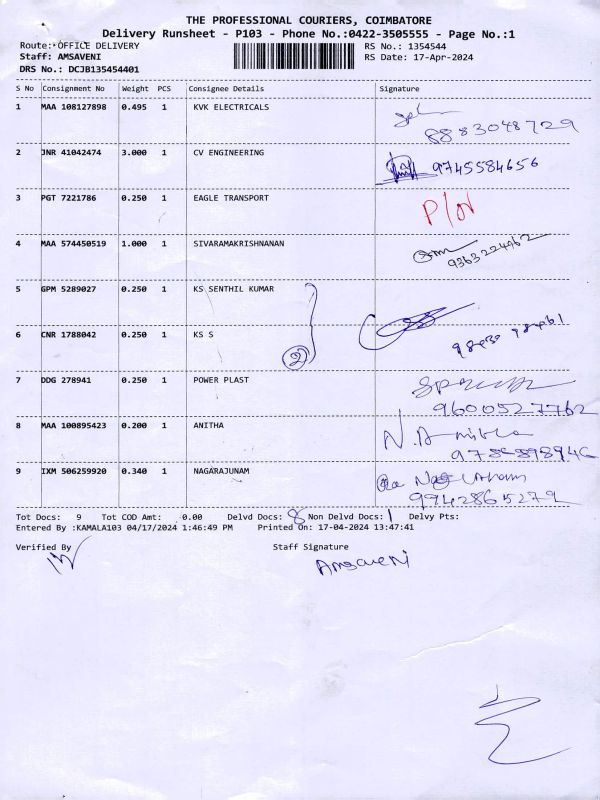 THE PROFESSIONAL COURIERS, COIMBATORE
Delivery Runsheet - P103 - Phone No.:0422-3505555 - Page No.:1
Route: OFFICE DELIVERY RS No.: 1354544
Staff: AMSAVENI RS Date: 17-Apr-2024
DRS No.: DCJB135454401
S No Consignment No Weight PCS Consignee Details Signature
1 MAA 108127898 0.495 1 KVK ELECTRICALS
8883048729
2 JNR 41042474 3.000 1 CV ENGINEERING 9745584656
3 PGT 7221786 0.250 1 EAGLE TRANSPORT P/N
4 MAA 574450519 1.000 1 SIVARAMAKRISHNANAN
9363224962
5 GPM 5289027 0.250 1 KS SENTHIL KUMAR
6 CNR 1788042 0.250 1 KS S
2
7 DDG 278941 0.250 1 POWER PLAST
9600527762
8 MAA 100895423 0.200 1 ANITHA N. Anitha
9 IXM 506259920 0.340 1 NAGARAJUNAM
9942865279
Tot Docs: 9 Tot COD Amt: 0.00 Delvd Docs: 8 Non Delvd Docs: 1 Delvy Pts:
Entered By :KAMALA103 04/17/2024 1:46:49 PM Printed On: 17-04-2024 13:47:41
Verified By Staff Signature
Amsaveni